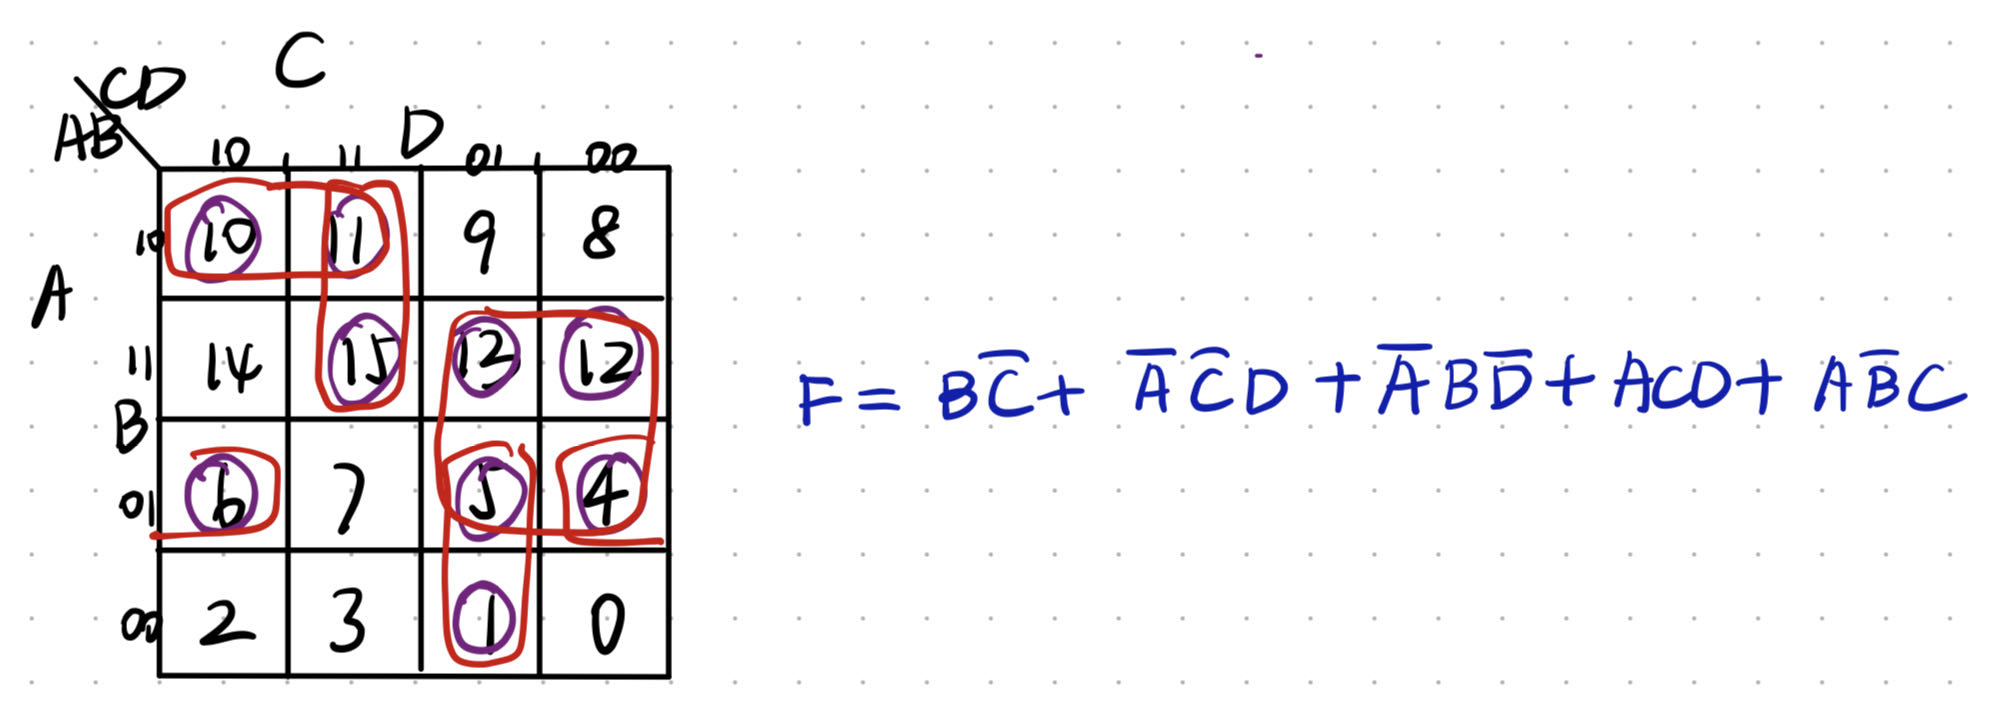 C
CD
AB
D
10 11 01 00
10 10 11 9 8
A
11 14 15 12 12
B
01 6 7 5 4
00 2 3 1 0
F = BC̅ + A̅C̅D + A̅BD̅ + ACD + AB̅C